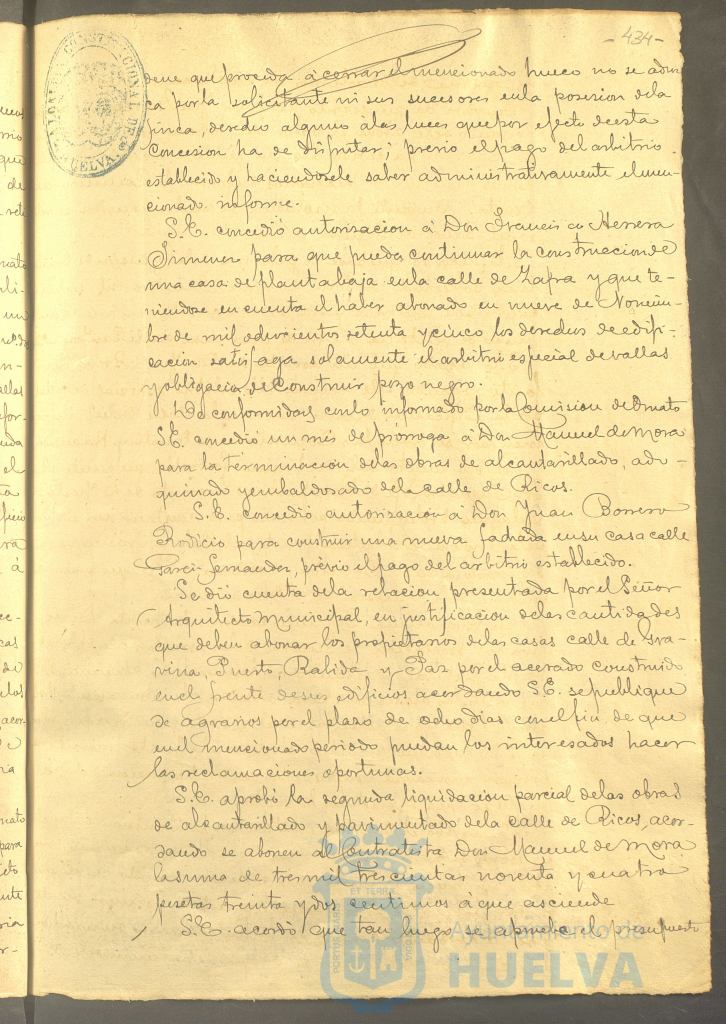 -434-
ALCALDIA CONSTITUCIONAL DE HUELVA
dene que proceda á cerrar el mencionado hueco no se adm
ca por la solicitante ni sus sucesores en la posesion de la
finca, derecho alguno á las luces que por efecto de esta
concesion ha de disfrutar; previo el pago del arbitrio
establecido y haciendosele saber administrativamente el men-
cionado informe.
S.E. concedió autorizacion á Don Francisco Herrera
Jimenez para que pueda continuar la construccion de
una casa de planta baja en la calle de Zafra y que te-
niendose en cuenta el haber abonado en nueve de Noviem-
bre de mil ochocientos setenta y cinco los derechos de edifi-
cacion satisfaga solamente el arbitrio especial de vallas
y obligacion de construir pozo negro.
De conformidad con lo informado por la Comision de Ornato
S.E. concedió un mes de prórroga á Don Manuel de Mora
para la terminacion de las obras de alcantarillado, ado-
quinado y embaldosado de la calle de Ricos.
S.E. concedió autorizacion á Don Juan Borrero
Rodicio para construir una nueva fachada en su casa calle
Garci-Fernandez, prévio el pago del arbitrio establecido.
Se dió cuenta de la relacion presentada por el Señor
Arquitecto Municipal, en justificacion de las cantidades
que deben abonar los propietarios de las casas calle de Gra-
vina, Puerto, Rabida y Paz por el acerado construido
en el frente de sus edificios acordando S.E. se publique
de agravios por el plazo de ocho dias con el fin de que
en el mencionado periodo puedan los interesados hacer
las reclamaciones oportunas.
S.E. aprobó la segunda liquidacion parcial de las obras
de alcantarillado y pavimentado de la calle de Ricos, acor-
dando se abonen al Contratista Don Manuel de Mora
la suma de tres mil trescientas noventa y cuatro
pesetas treinta y dos centimos á que asciende
S.E. acordó que tan luego se apruebe el presupuesto
Ayuntamiento de
HUELVA